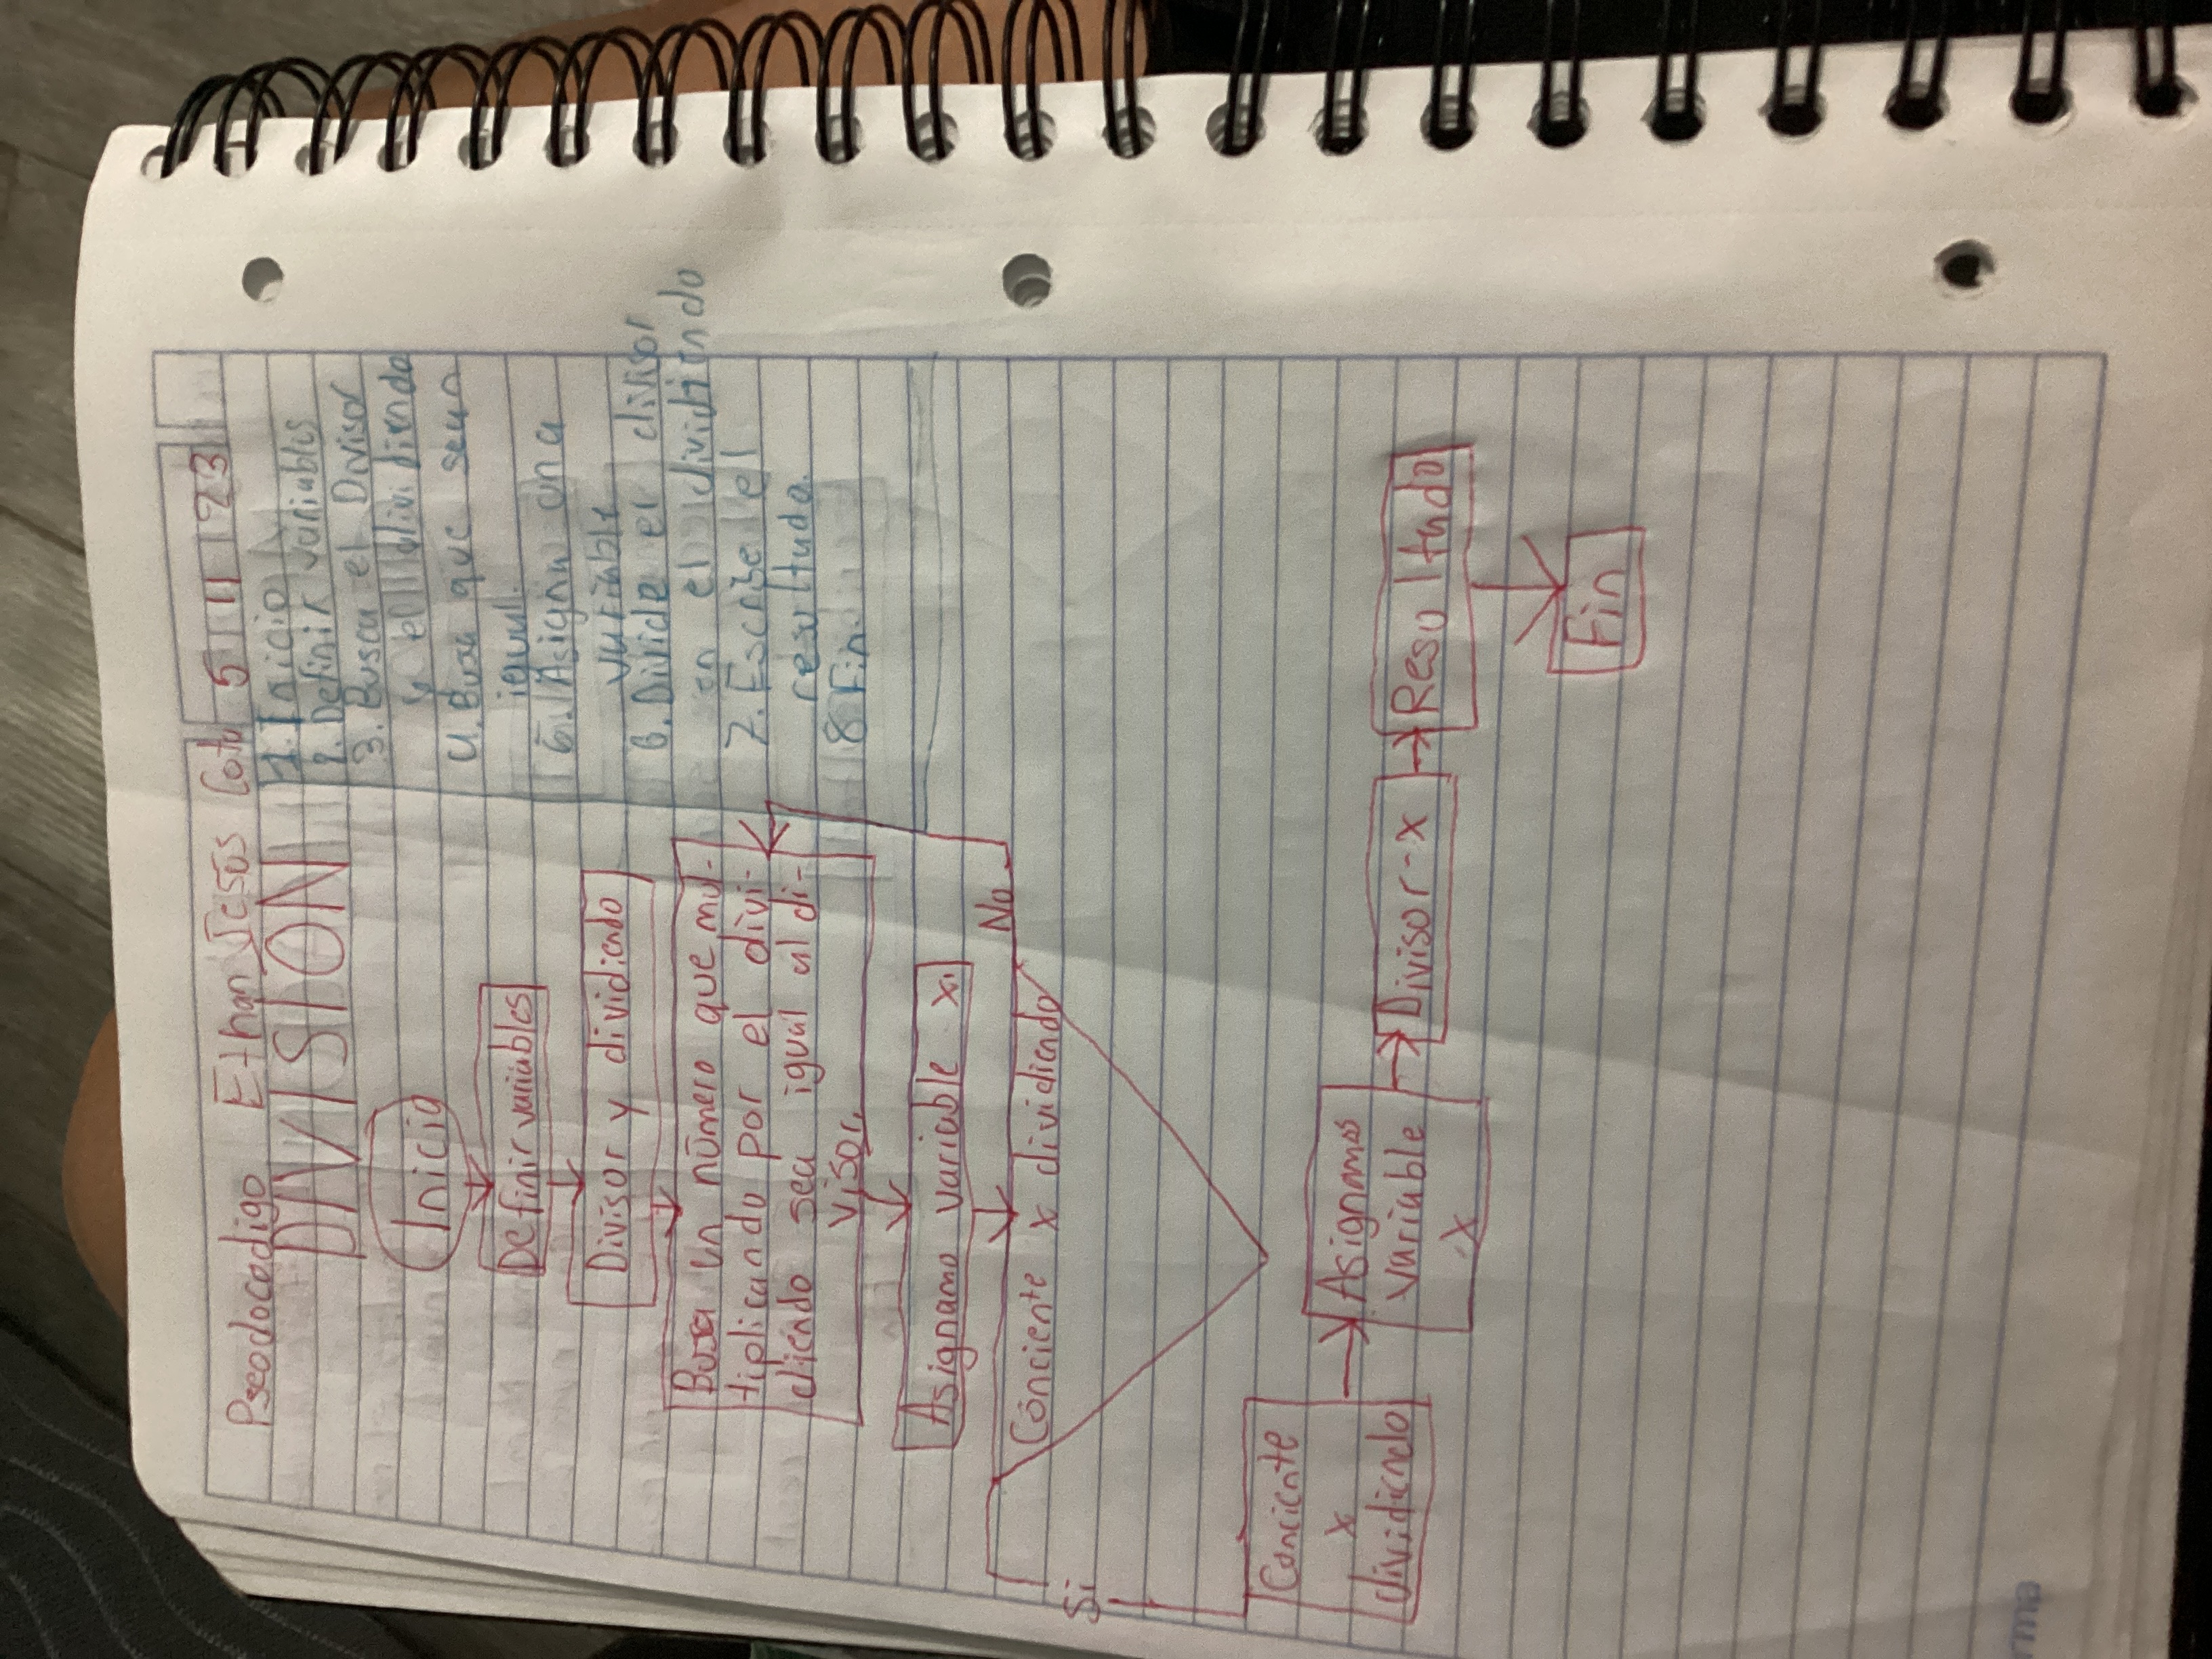 Pseodocodigo Ethan Jesús Cota 5 11 23
DIVISION
1. Inicio
2. Definir variables
3. Busca el Divisor
y el dividiendo
4. Busca que sean
igual.
5. Asigna una
variable
6. Divide el divisor
en el dividiendo
7. Escribe el
resultado.
8 Fin.
Inicio
Definir variables
Divisor y dividiendo
Busca un número que mul-
tiplicando por el divi-
diendo sea igual al di-
visor.
Asignamo variable x.
No
Conciente x dividiendo
Si
Conciente
x
dividiendo
Asignamos
variable
x
Divisor-x
Resultado
Fin